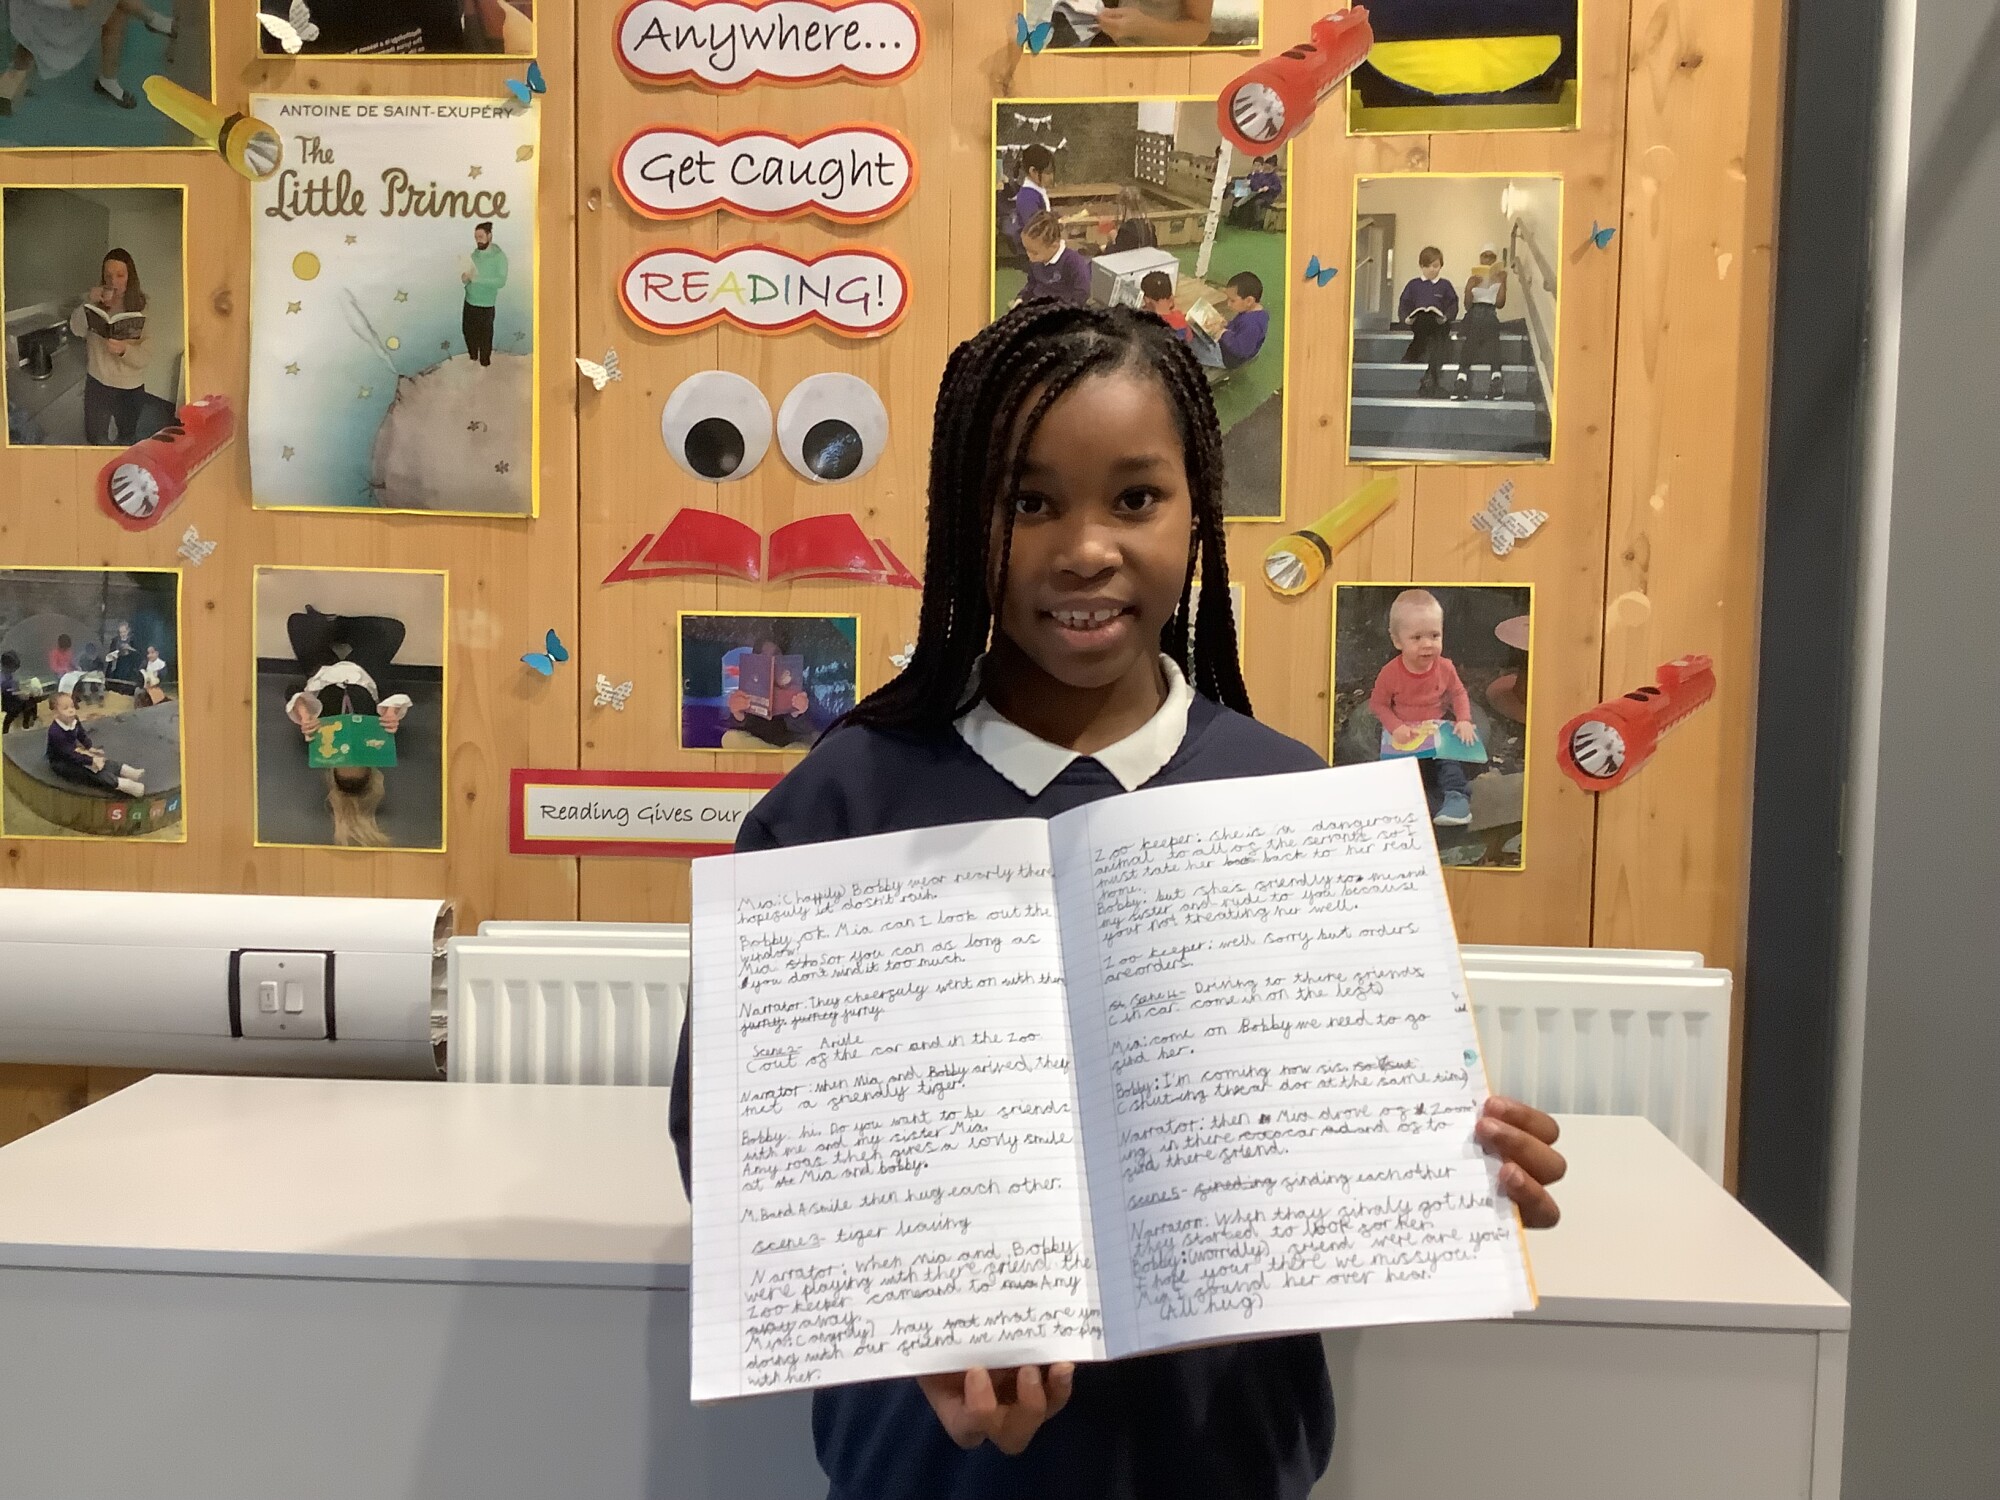 Anywhere...
Get Caught
READING!
ANTOINE DE SAINT-EXUPÉRY
The
Little Prince
Sand
Reading Gives Our
Mia:(happily) Bobby wear nearly there
hopefuly it dosn't rush.
Bobby ok. Mia can I look out the
window?
Mia sor you can as long as
you dont mind it too much.
Narrator: They cheerfuly went on with there
jurney jurney jurny.
Scene 2-
(out of the car and in the zoo
Narrator: when Mia and Bobby arived they
met a friendly tiger.
Bobby: hi. Do you want to be friends
with me and my sister Mia.
Amy roas then gives a lovly smile
at Mia and bobby.
M,B and A smile then hug each other.
scene 3- tiger leaving
Narrator: when Mia and Bobby
were playing with there friend the
Zoo keeper came and to mia Amy
away away.
Mia:(angrily) hay wat what are you
doing with our friend we want to play
with her.
Zoo keeper: she is a dangerous
animal to all of the servants so I
must take her back to her real
home.
Bobby: but shes friendly to me and
my sister and rude to you because
your not treating her well.
Zoo keeper: well sorry but orders
are orders.
Scene 4- Driving to there friends
(in car. come in on the left)
Mia: come on Bobby we need to go
find her.
Bobby: I'm coming now sis.
(shuting thear dor at the same time)
Narrator: then Mia drove of Zoom
ing in there car and of to
find there friend.
scene 5- fineding finding each other
Narrator: When thay finaly got there
they started to look for her.
Bobby:(worridly) friend were are you
I hope your there we miss you.
Mia I found her over hear.
(All hug)